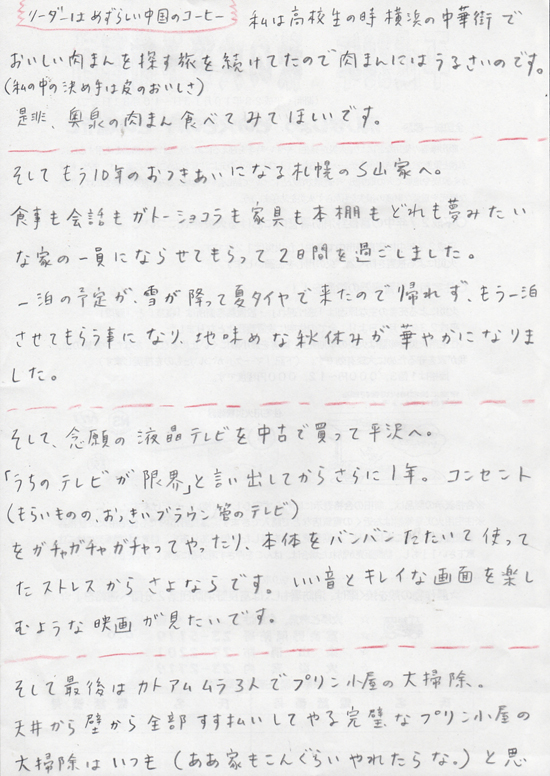 リーダーはめずらしい中国のコーヒー
私は高校生の時横浜の中華街で
おいしい肉まんを探す旅を続けてたので肉まんにはうるさいのです。
(私の中の決め手は皮のおいしさ)
是非、奥泉の肉まん食べてみてほしいです。
そしてもう10年のおつきあいになる札幌のS山家へ。
食事も会話もガトーショコラも家具も本棚もどれも夢みたい
な家の一員にならせてもらって2日間を過ごしました。
一泊の予定が、雪が降って夏タイヤで来たので帰れず、もう一泊
させてもらう事になり、地味めな秋休みが華やかになりま
した。
そして、念願の液晶テレビを中古で買って平沢へ。
「うちのテレビが限界」と言い出してからさらに1年。コンセント
(もらいものの、おっきいブラウン管のテレビ)
をガチャガチャガチャってやったり、本体をバンバンたたいて使って
たストレスからさよならです。いい音とキレイな画面を楽し
むような映画が見たいです。
そして最後はカトアムムラ3人でプリン小屋の大掃除。
天井から壁から全部すす払いしてやる完璧なプリン小屋の
大掃除はいつも(ああ家もこんぐらいやれたらな。)と思